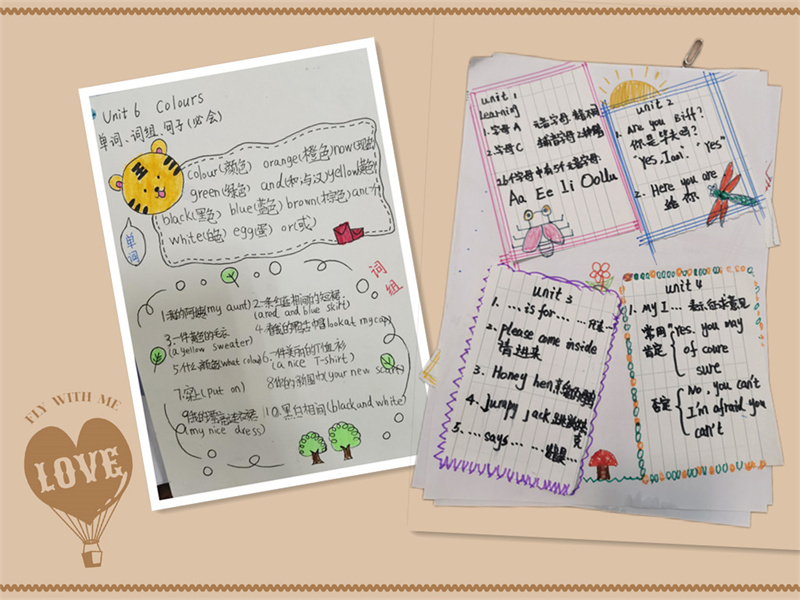 Unit 6 Colours
单词、词组、句子(必会)
colour(颜色) orange(橙色) now(现在)
green(绿色) and(和,与,又) yellow(黄色)
black(黑色) blue(蓝色) brown(棕色) an(一个)
white(白色) egg(蛋) or(或)
单词
词组
1.我的阿姨(my aunt) 2.一条红蓝相间的短裙
(a red and blue skirt)
3.一件黄色的毛衣
(a yellow sweater)
4. look at my cap
5.什么颜色(what colour) 6.一件美丽的T恤衫
(a nice T-shirt)
7.穿上(put on) 8.你的新围巾(your new scarf)
(my nice dress)
10.黑白相间(black and white)
unit 1
Learning
1.字母A
2.字母C
26个字母中有5个元音字母.
Aa Ee Ii Oo Uu
unit 2
1. Are you Biff?
你是毕夫吗?
"Yes, I am." "Yes"
2. Here you are
给你
unit 3
1. ... is for... ...
2. please come inside
请进来
3. Honey hen
4. Jumpy Jack
5. ... says ... ...
unit 4
1. My I... 表示征求意见
常用 Yes. you may
肯定 of coure
sure
否定 No, you can't
I'm afraid you
can't
FLY WITH ME
LOVE